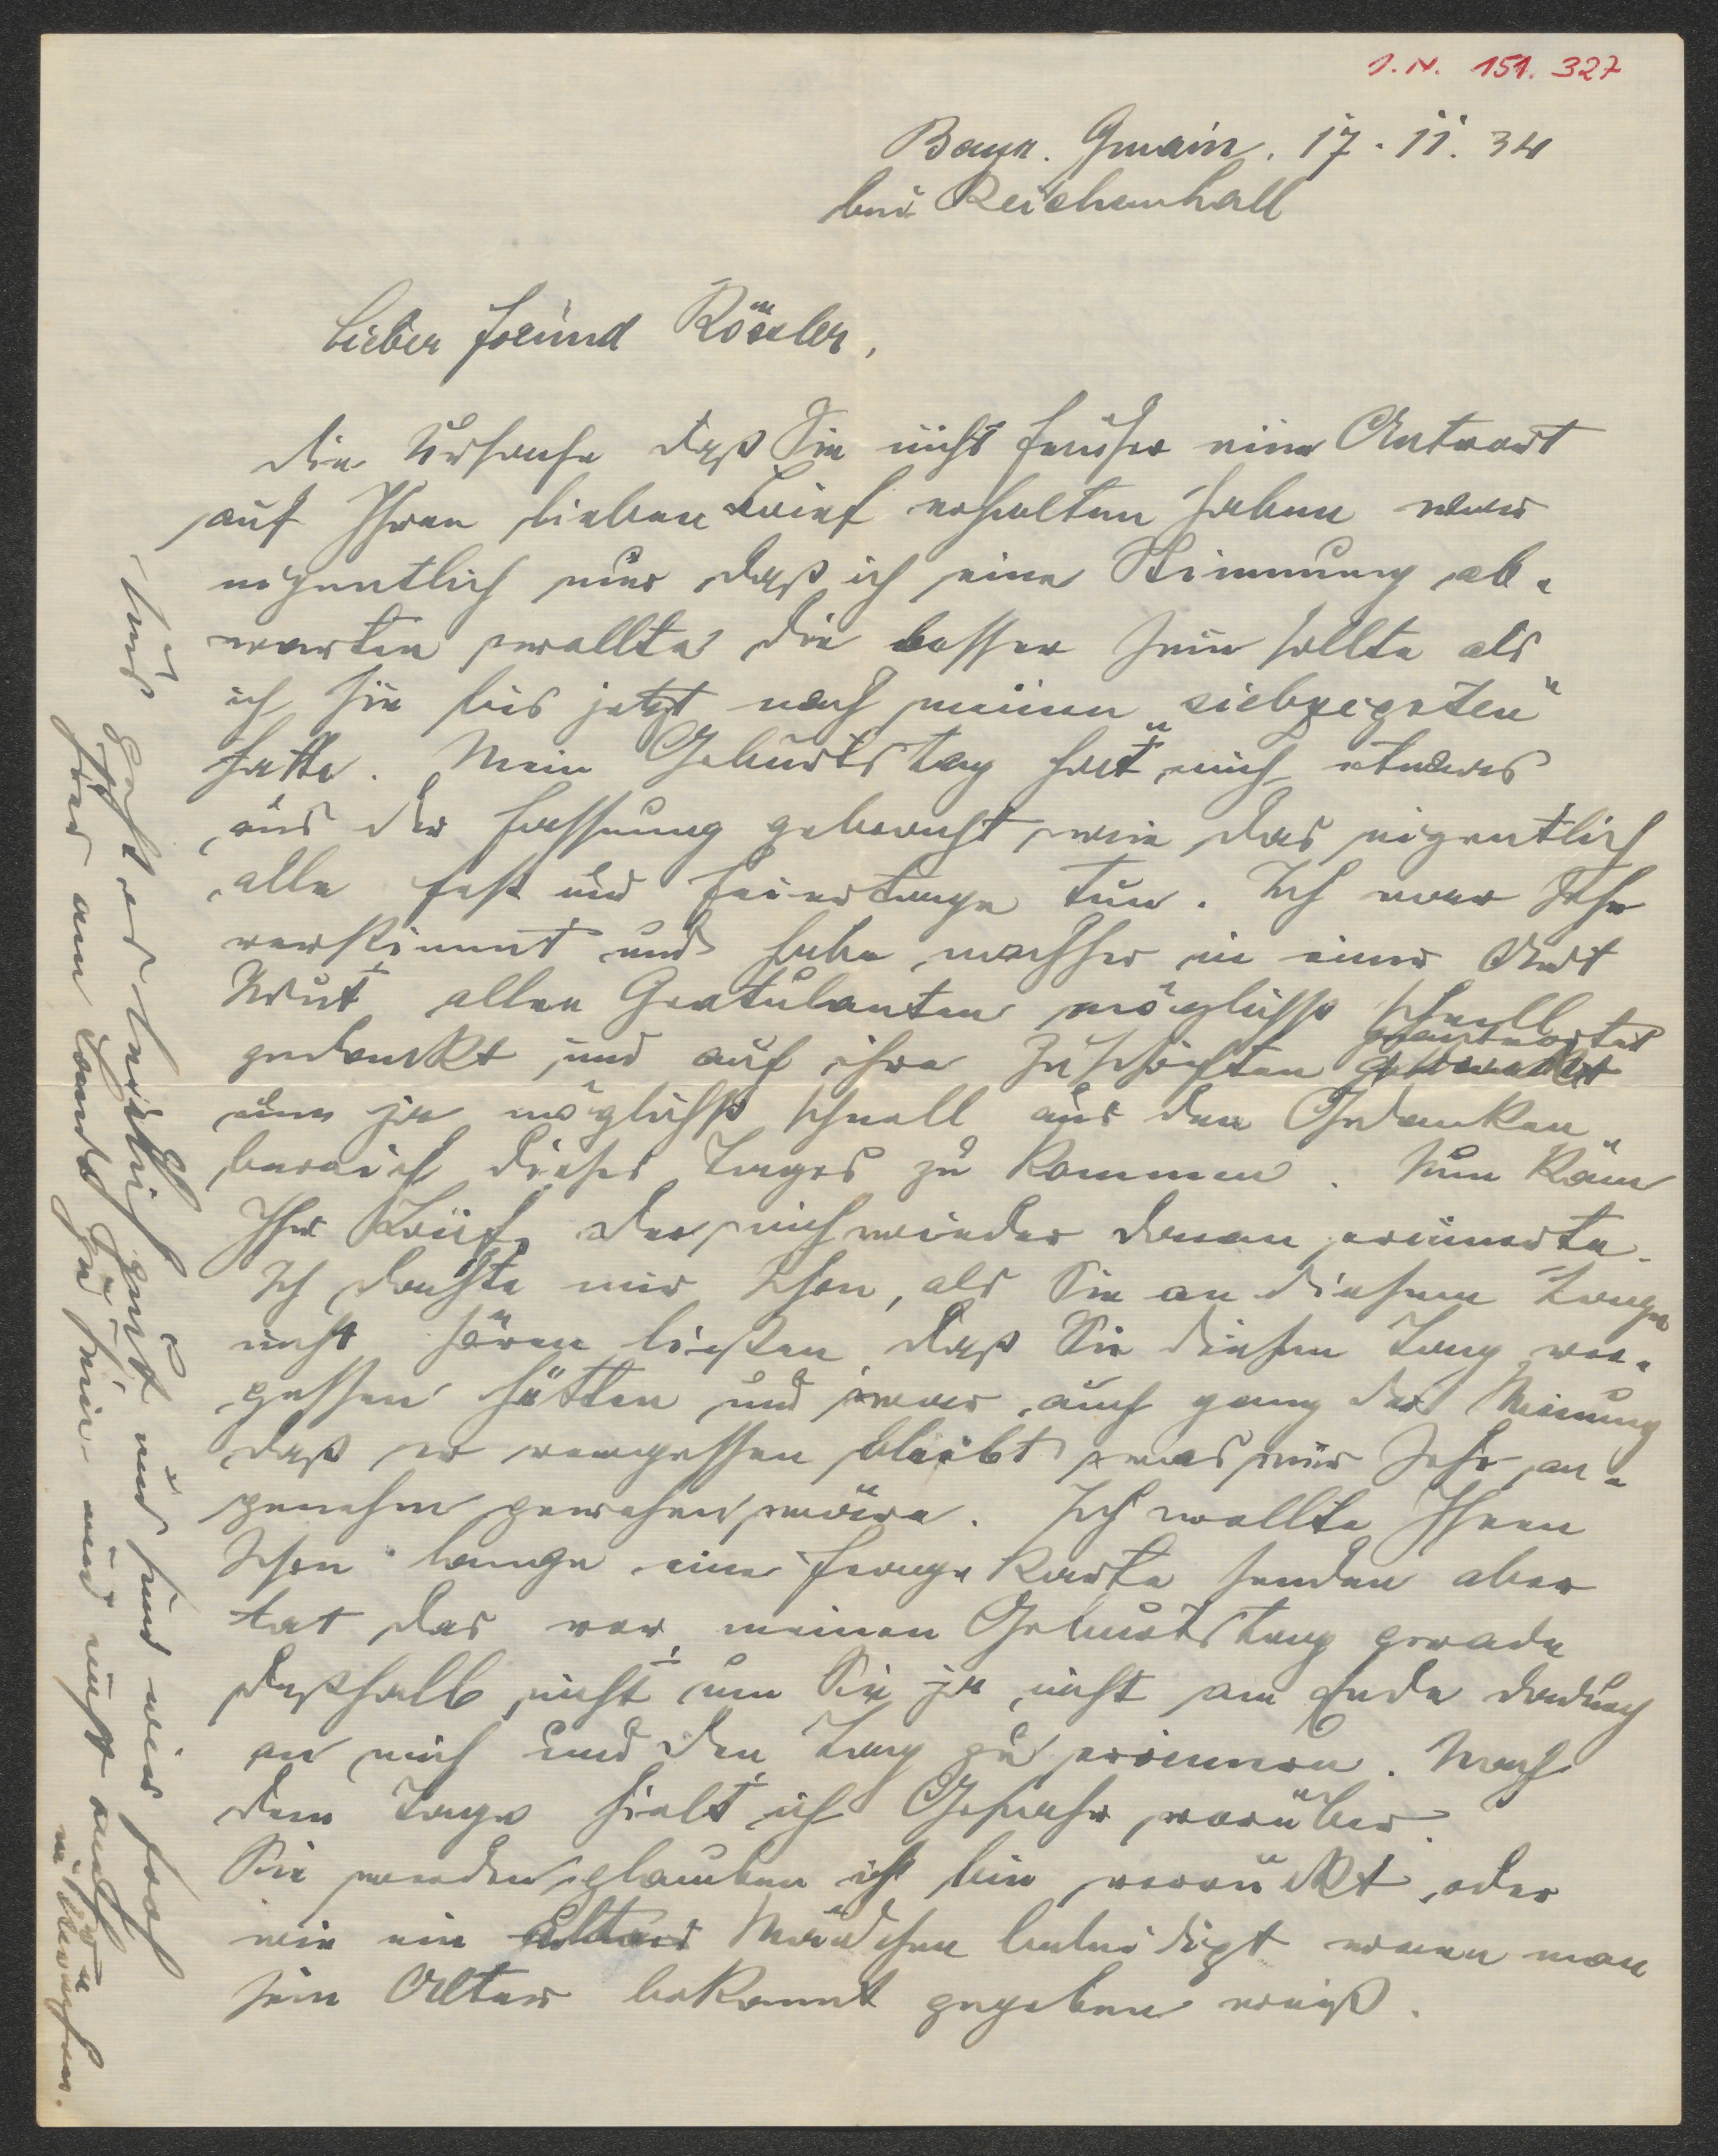 J.N. 151.327
Bayr. Gmain. 17.11.34
bei Reichenhall
Lieber Freund Rössler,
die Ursache daß Sie nicht früher eine Antwort
auf Ihren lieben Brief erhalten haben war
eigentlich nur daß ich eine Stimmung ab-
warten wollte die besser sein sollte als
ich sie bis jetzt nach meinen „siebzigsten"
hatte. Mein Geburtstag hat mich etwas
aus der Fassung gebracht wie das eigentlich
alle Fest und Feiertage tun. Ich war sehr
verstimmt und habe nachher in einer Art
Wut allen Gratulanten möglichst schnell
gedankt und auf ihre Zuschriften geantwortet
um ja möglichst schnell aus den Gedanken
bereich dieses Tages zu kommen. Nun kam
Ihr Brief, der mich wieder daran erinnerte.
Ich dachte mir schon, als Sie an diesem Tage
nicht hören ließen, daß Sie diesen Tag ver-
gessen hätten und war auch ganz der Meinung
daß er vergessen bleibt was mir sehr an-
genehm gewesen wäre. Ich wollte Ihnen
schon lange eine Frage Karte senden aber
tat das vor meinen Geburtstag gerade
deßhalb nicht um Sie ja nicht am Ende dadurch
an mich und den Tag zu erinnern. Nach
dem Tage hielt ich Gefahr vorüber.
Sie werden glauben ich bin verrückt oder
wie ein älteres Mädchen beleidigt wenn man
sein Alter bekannt gegeben weiß.
Uns geht es herzlich gut und sind wir froh
hier am Lande zu sein und nicht auch